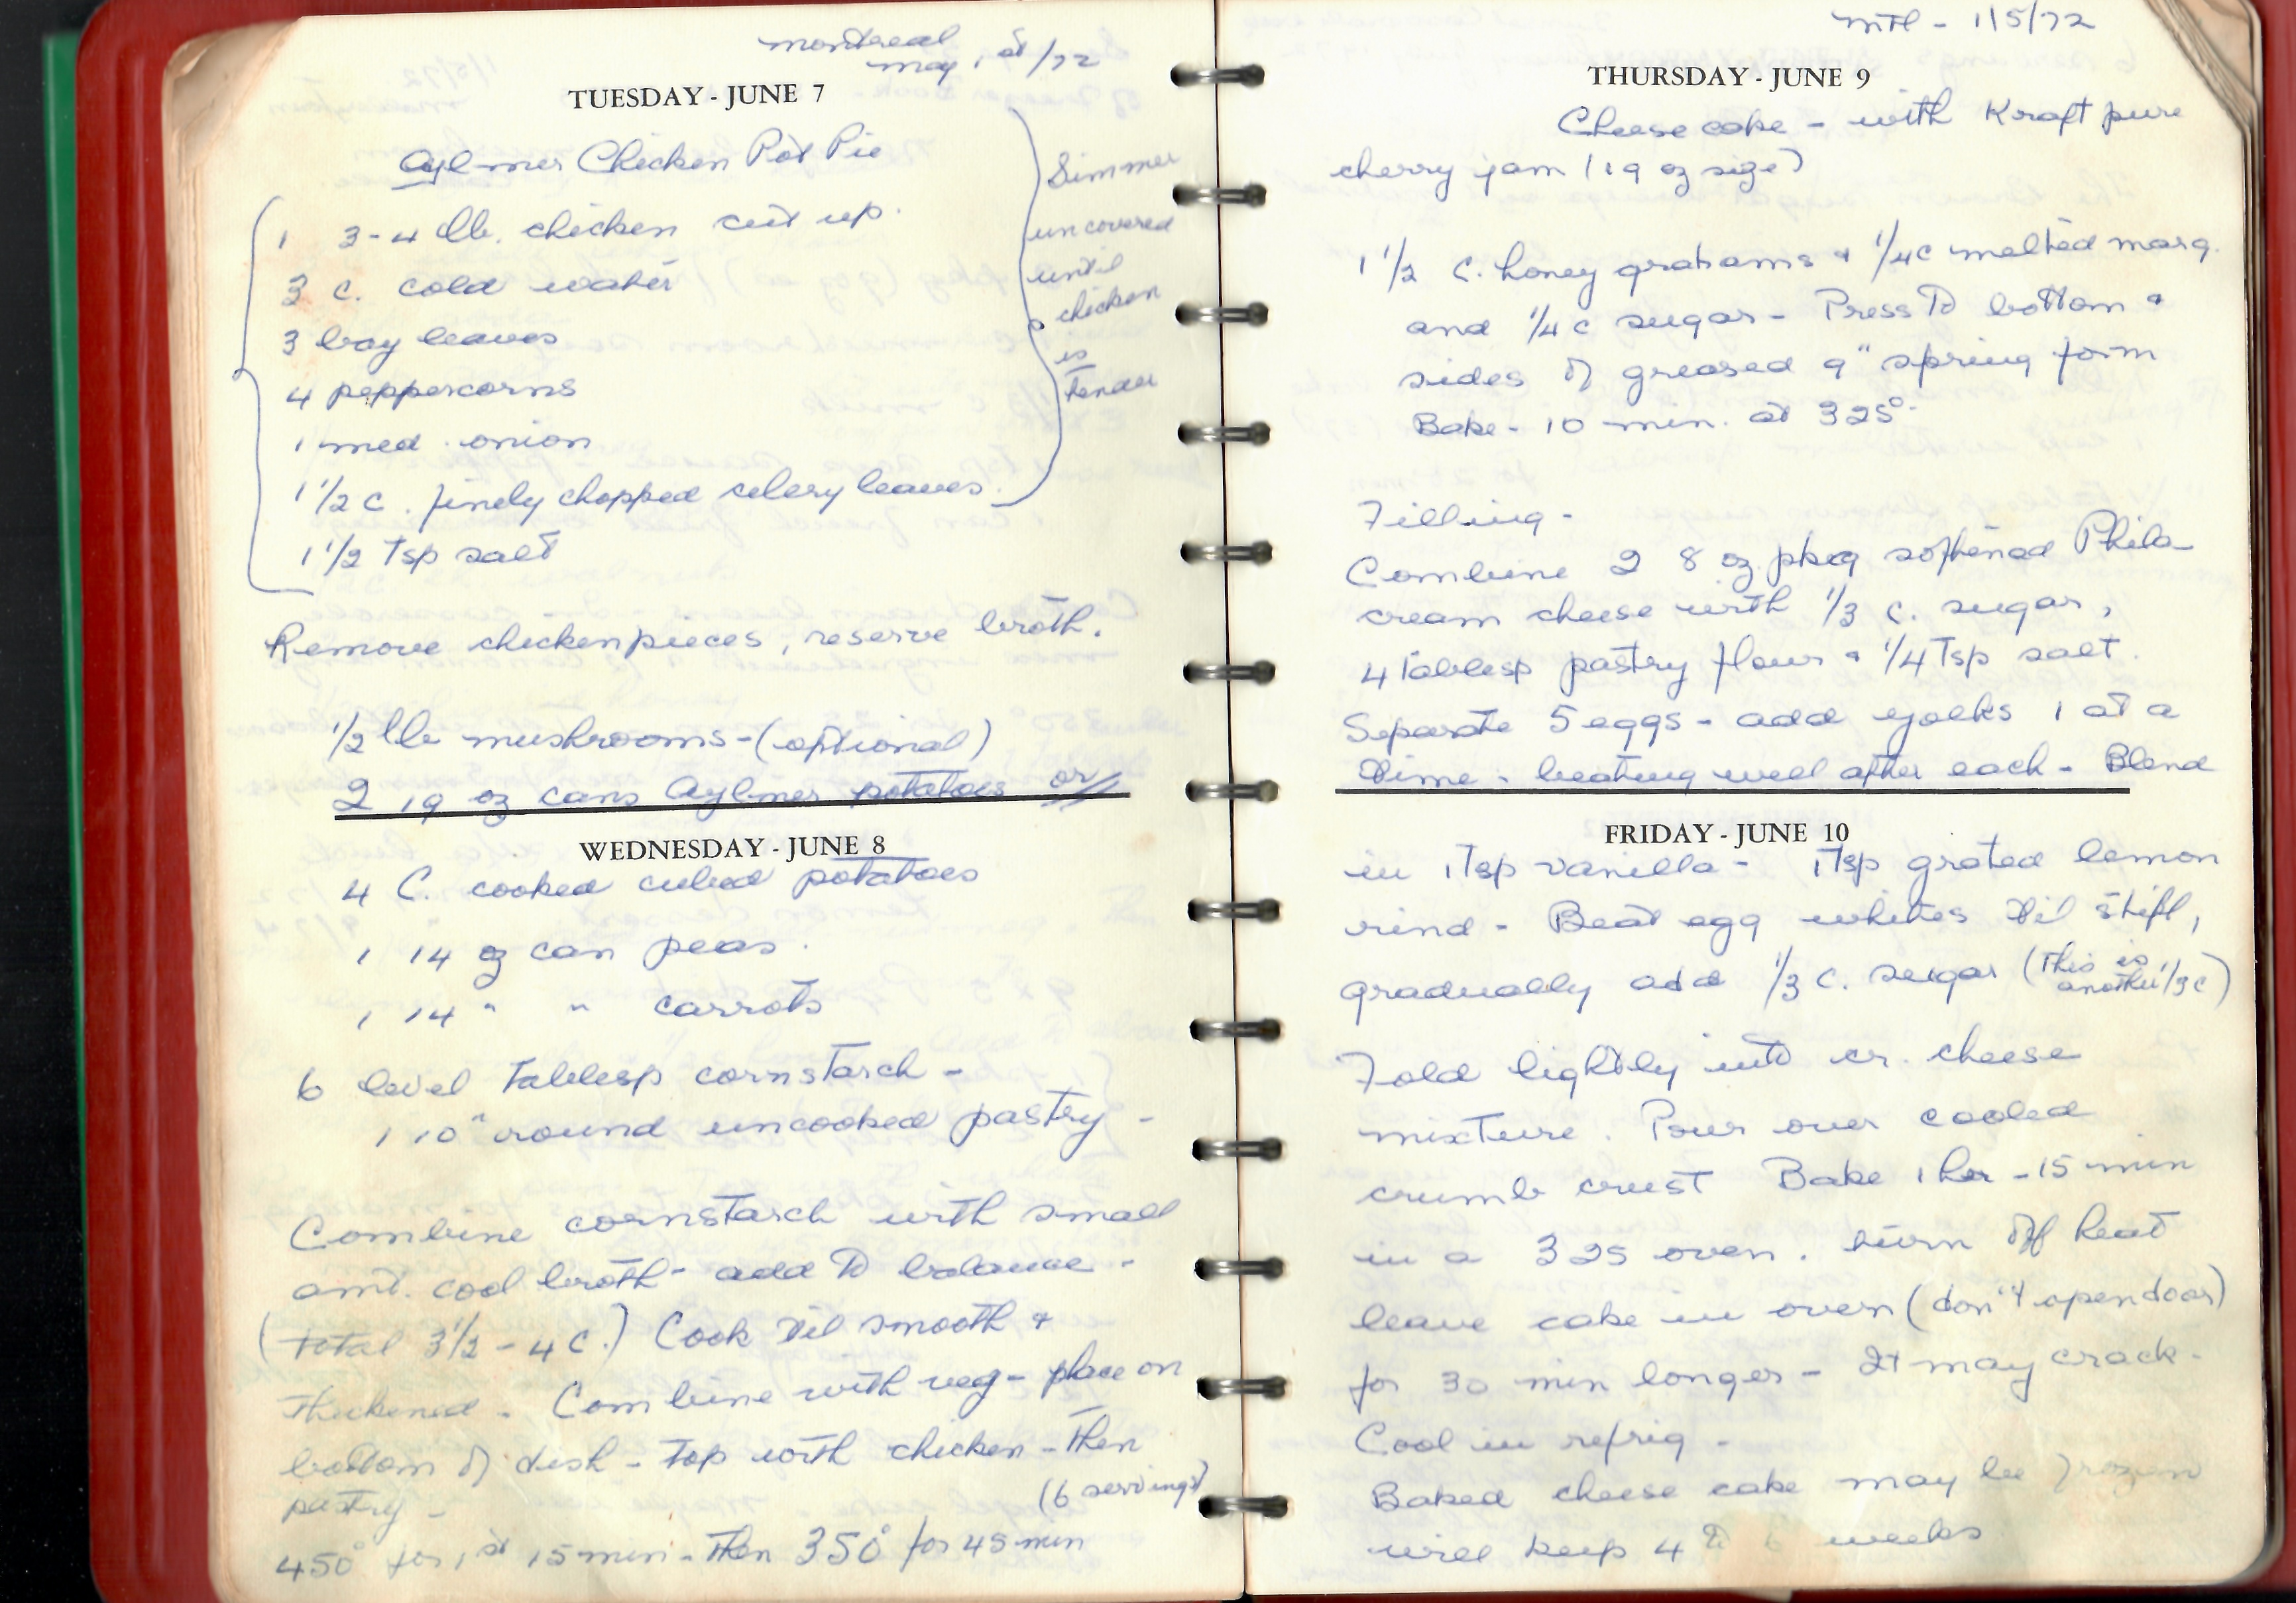 montreal
may 1st/72
TUESDAY - JUNE 7
Aylmer Chicken Pot Pie
1 3-4 lb. chicken cut up.
3 c. cold water
3 bay leaves
4 peppercorns
1 med. onion
1 1/2 c. finely chopped celery leaves.
1 1/2 Tsp salt
Simmer
uncovered
until
chicken
is
tender
Remove chicken pieces, reserve broth.
1/2 lb mushrooms - (optional)
2 19 oz cans Aylmer potatoes or
WEDNESDAY - JUNE 8
4 C. cooked cubed potatoes
1 14 oz can peas.
1 14 " " carrots
6 level Tablesp cornstarch -
1 10" round uncooked pastry -
Combine cornstarch with small
amt. cool broth - add to balance -
(total 3 1/2 - 4 c.) Cook til smooth &
thickened. Combine with veg - place on
bottom of dish - top with chicken - Then
pastry - (6 servings)
450° for 1st 15 min. - Then 350° for 45 min
mtl - 1/5/72
THURSDAY - JUNE 9
Cheese cake - with Kraft pure
cherry jam (19 oz size)
1 1/2 C. honey grahams & 1/4 c melted marg.
and 1/4 c sugar - Press to bottom &
sides of greased 9" spring form
Bake - 10 min. at 325°
Filling -
Combine 2 8 oz pkg softened Phila
cream cheese with 1/3 c. sugar,
4 Tablesp pastry flour & 1/4 Tsp salt.
Separate 5 eggs - add yolks 1 at a
time - beating well after each - Blend
FRIDAY - JUNE 10
in 1 Tsp vanilla - 1 Tsp grated lemon
rind - Beat egg whites til stiff,
gradually add 1/3 c. sugar (This is another 1/3 c)
Fold lightly into cr. cheese
mixture. Pour over cooled
crumb crust Bake 1 hr - 15 min
in a 325 oven. turn off heat
leave cake in oven (don't open door)
for 30 min longer - It may crack -
Cool in refrig -
Baked cheese cake may be frozen
will keep 4 to 6 weeks